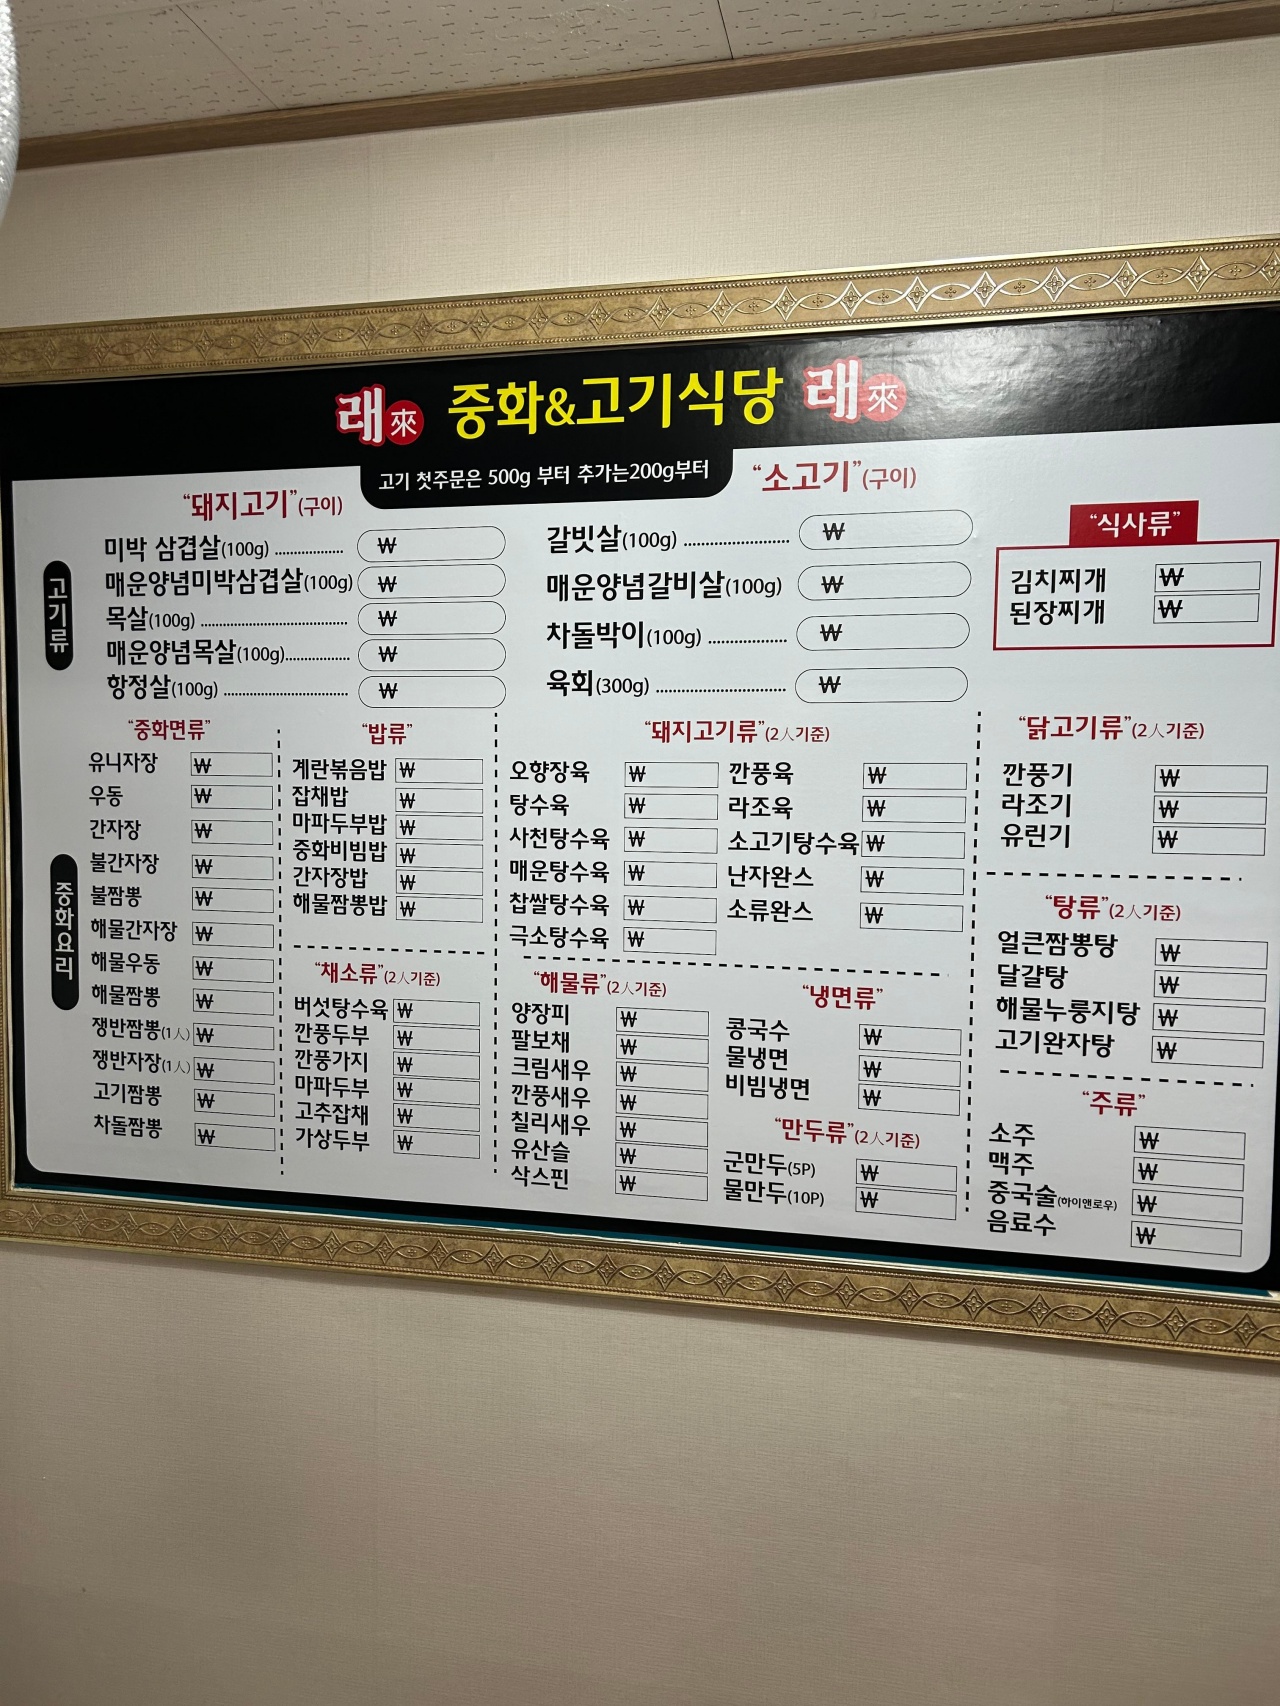 래來 중화&고기식당 래來
고기 첫주문은 500g 부터 추가는200g부터
고기류
“돼지고기”(구이)
미박 삼겹살(100g) ................. ₩
매운양념미박삼겹살(100g) ₩
목살(100g) ................................... ₩
매운양념목살(100g)................ ₩
항정살(100g) .............................. ₩
“소고기”(구이)
갈빗살(100g) ......................... ₩
매운양념갈비살(100g) ₩
차돌박이(100g) ................... ₩
육회(300g) ............................... ₩
“식사류”
김치찌개 ₩
된장찌개 ₩
중화요리
“중화면류”
유니자장 ₩
우동 ₩
간자장 ₩
불간자장 ₩
불짬뽕 ₩
해물간자장 ₩
해물우동 ₩
해물짬뽕 ₩
쟁반짬뽕(1人) ₩
쟁반자장(1人) ₩
고기짬뽕 ₩
차돌짬뽕 ₩
“밥류”
계란볶음밥 ₩
잡채밥 ₩
마파두부밥 ₩
중화비빔밥 ₩
간자장밥 ₩
해물짬뽕밥 ₩
“채소류”(2人기준)
버섯탕수육 ₩
깐풍두부 ₩
깐풍가지 ₩
마파두부 ₩
고추잡채 ₩
가상두부 ₩
“돼지고기류”(2人기준)
오향장육 ₩ 깐풍육 ₩
탕수육 ₩ 라조육 ₩
사천탕수육 ₩ 소고기탕수육 ₩
매운탕수육 ₩ 난자완스 ₩
찹쌀탕수육 ₩ 소류완스 ₩
극소탕수육 ₩
“해물류”(2人기준)
양장피 ₩
팔보채 ₩
크림새우 ₩
깐풍새우 ₩
칠리새우 ₩
유산슬 ₩
삭스핀 ₩
“냉면류”
콩국수 ₩
물냉면 ₩
비빔냉면 ₩
“만두류”(2人기준)
군만두(5P) ₩
물만두(10P) ₩
“닭고기류”(2人기준)
깐풍기 ₩
라조기 ₩
유린기 ₩
“탕류”(2人기준)
얼큰짬뽕탕 ₩
달걀탕 ₩
해물누룽지탕 ₩
고기완자탕 ₩
“주류”
소주 ₩
맥주 ₩
중국술(하이앤로우) ₩
음료수 ₩